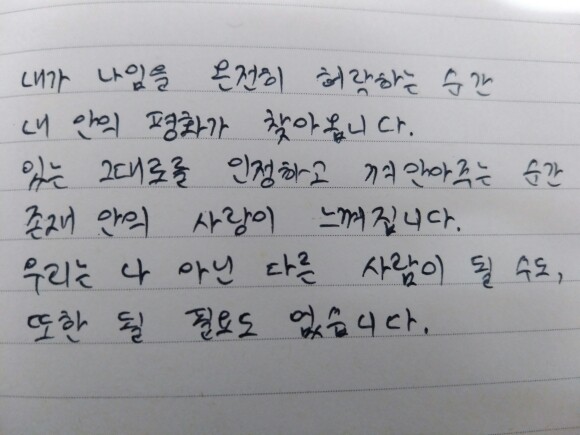 내가 나임을 온전히 허락하는 순간
내 안의 평화가 찾아옵니다.
있는 그대로를 인정하고 껴안아주는 순간
존재 안의 사랑이 느껴집니다.
우리는 나 아닌 다른 사람이 될 수도,
또한 될 필요도 없습니다.